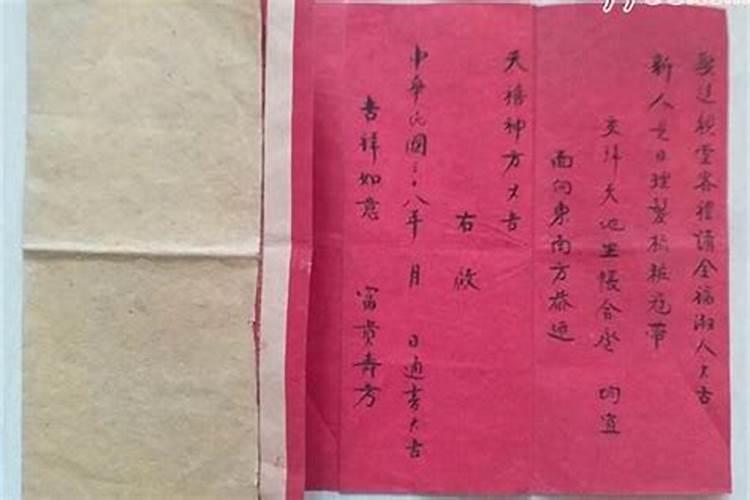 娶送親堂客禮請全福湘人大吉
新人是日理髮梳粧冠帶
交拜天地坐帳合卺 均宜
面向東南方恭迎
天禧神方大吉
右啟
中華民國三十八年 月 日通書大吉
吉祥如意 富貴壽方